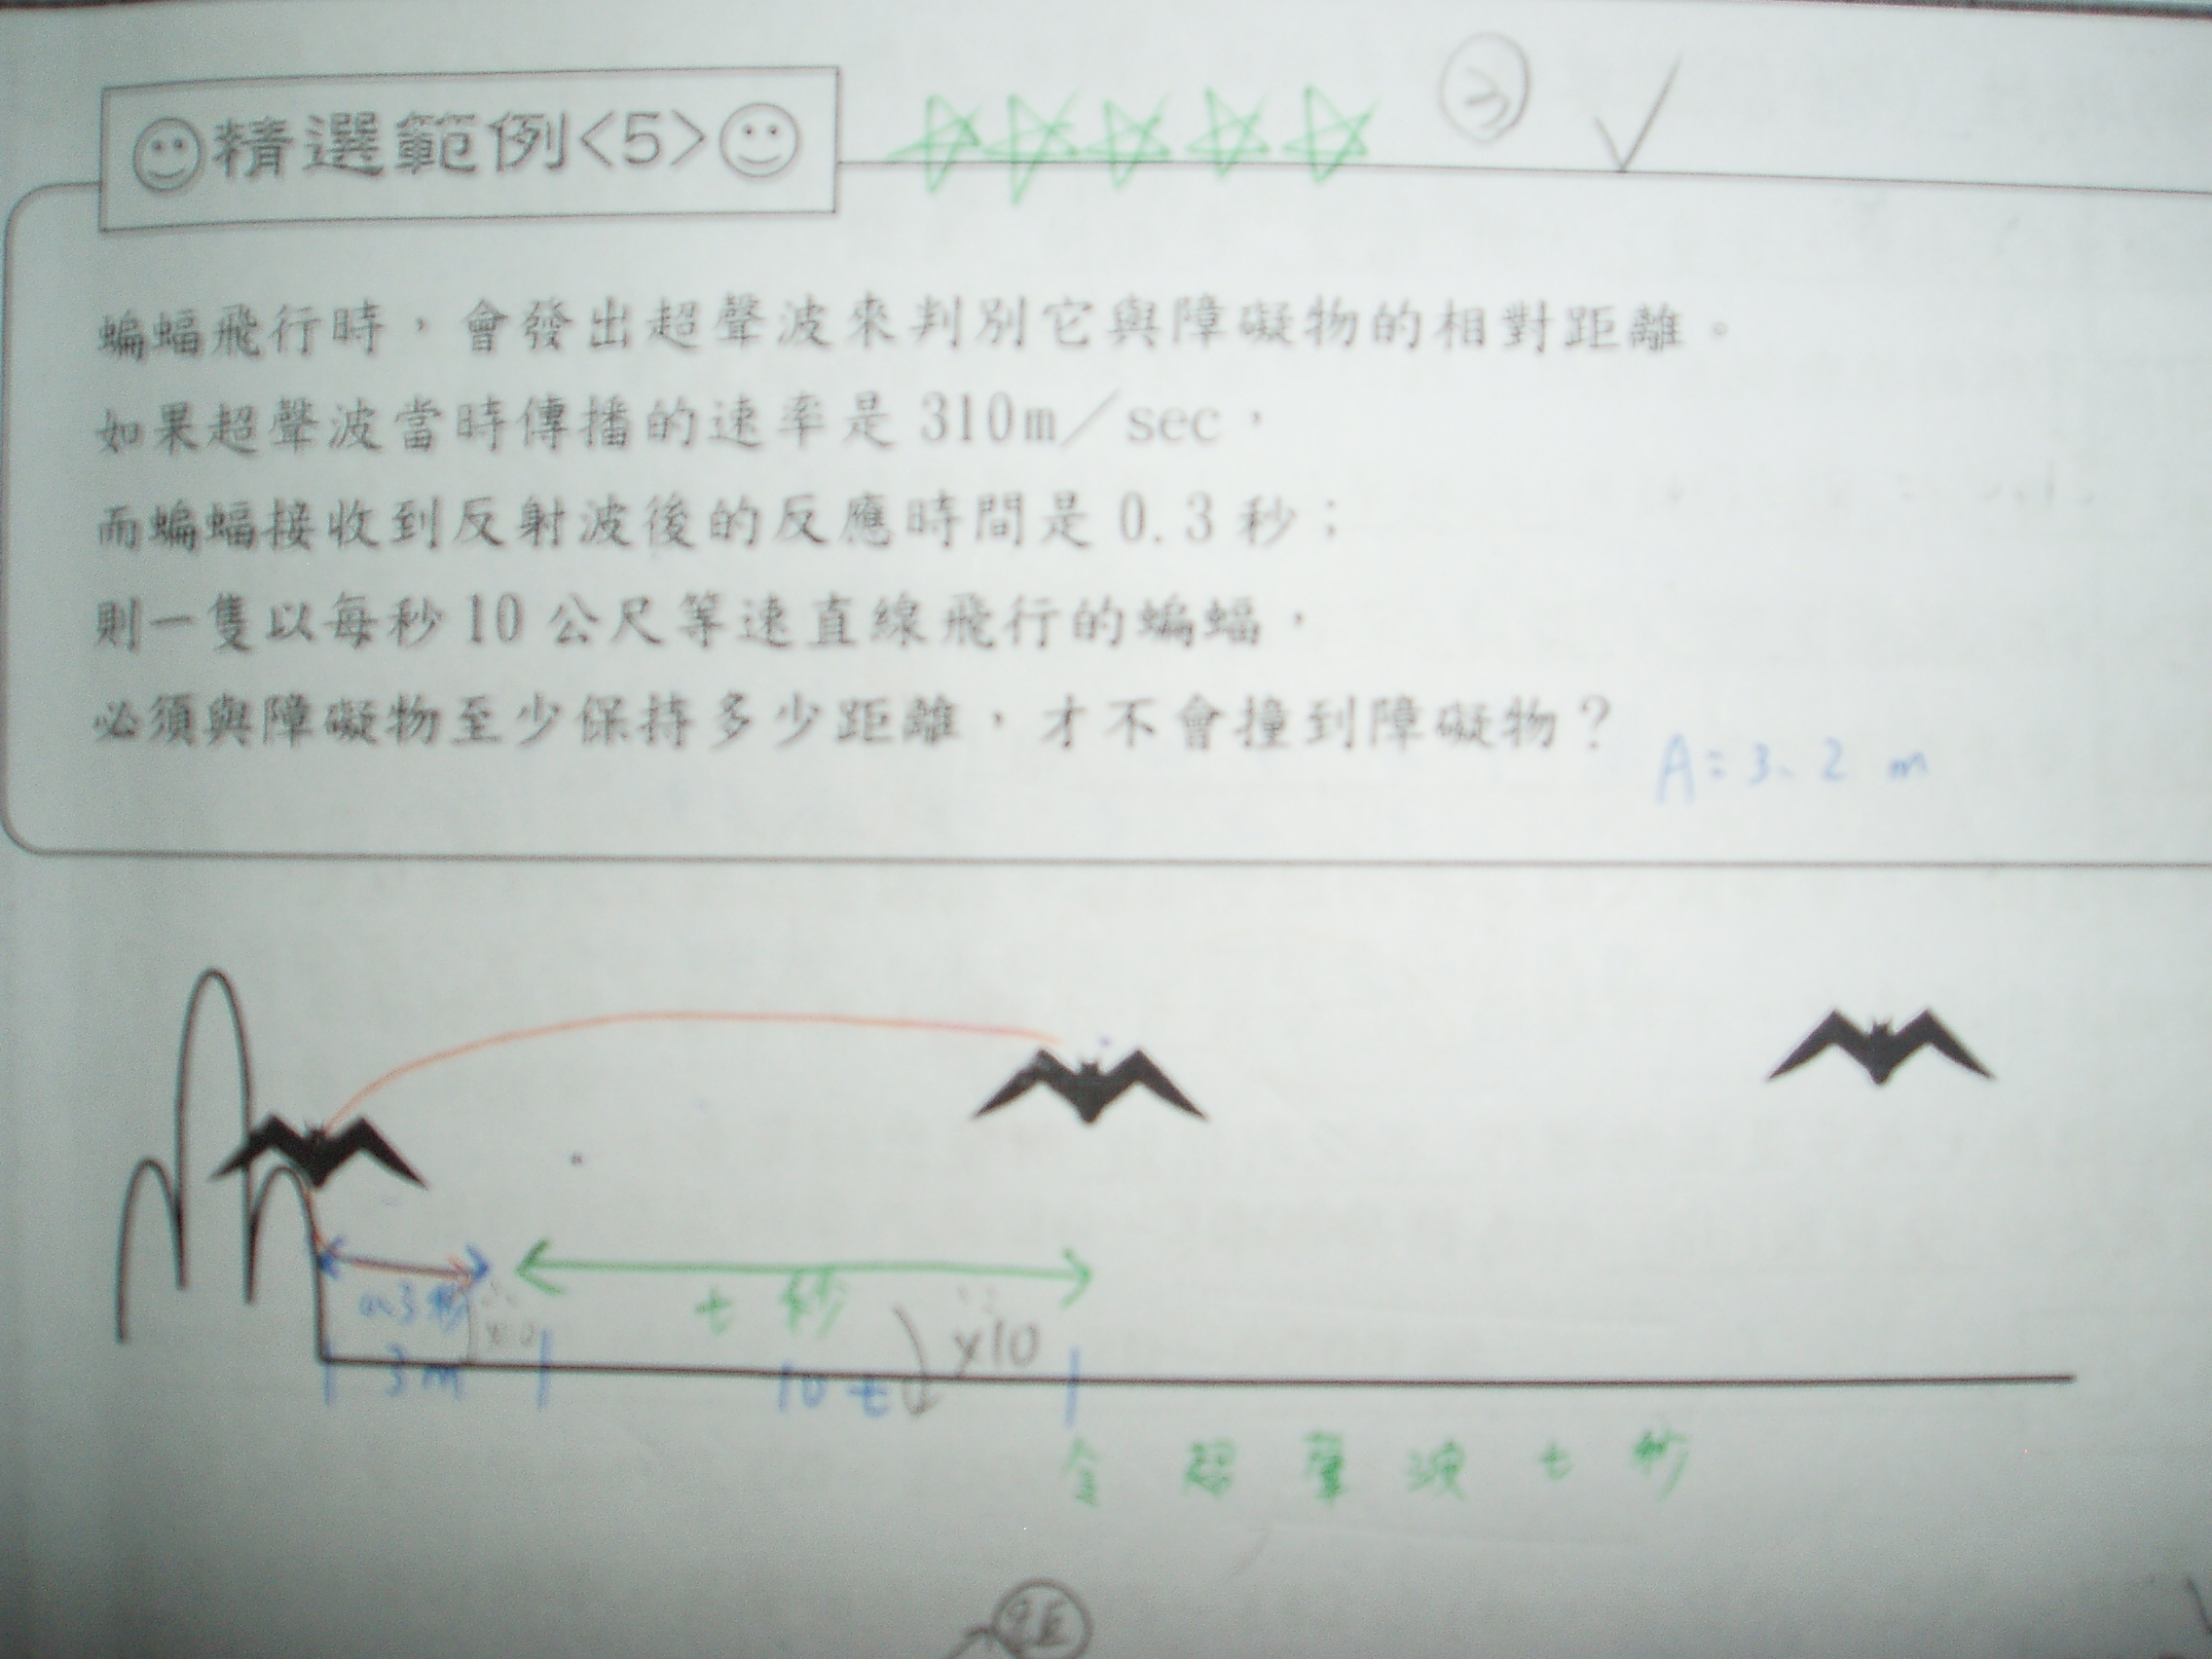 精選範例<5>
蝙蝠飛行時，會發出超聲波來判別它與障礙物的相對距離。
如果超聲波當時傳播的速率是310m／sec，
而蝙蝠接收到反射波後的反應時間是0.3秒；
則一隻以每秒10公尺等速直線飛行的蝙蝠，
必須與障礙物至少保持多少距離，才不會撞到障礙物？
A=3.2 m
0.3秒
t 秒
x10
3m
10t
令超聲波t秒